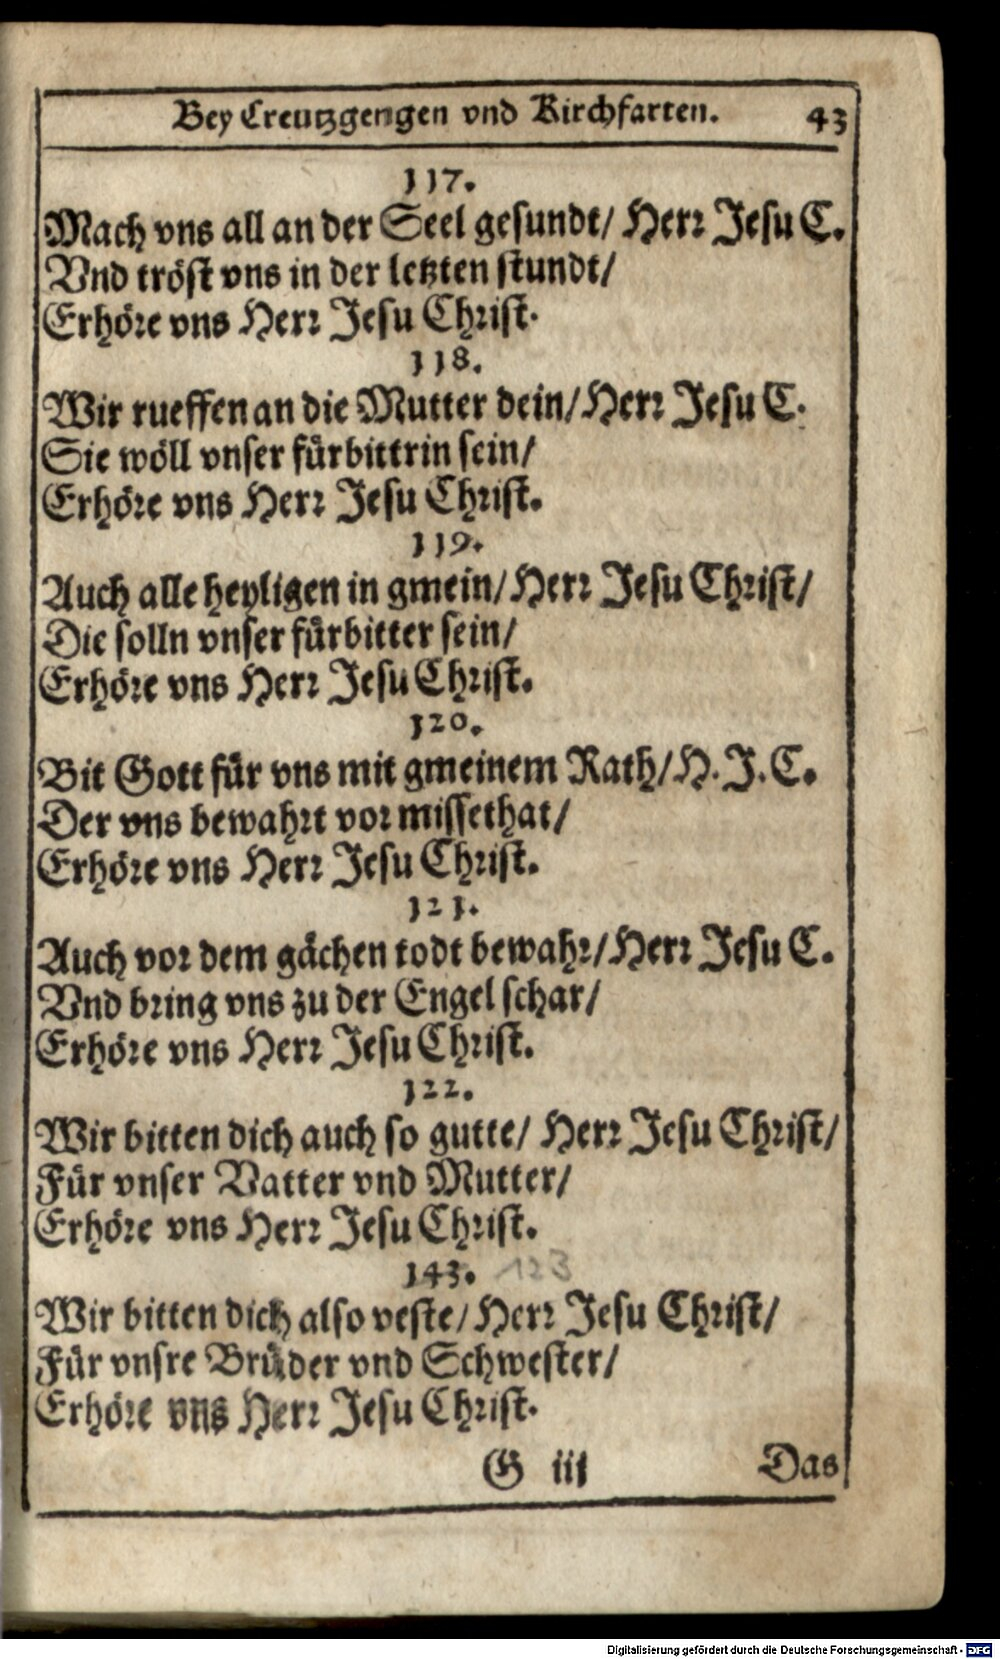 Bey Creutzgengen vnd Kirchfarten. 43
117.
Mach vns all an der Seel gesundt/ Herr Jesu C.
Vnd tröst vns in der letzten stundt/
Erhöre vns Herr Jesu Christ.
118.
Wir rueffen an die Mutter dein/ Herr Jesu C.
Sie wöll vnser fürbittrin sein/
Erhöre vns Herr Jesu Christ.
119.
Auch alle heyligen in gmein/ Herr Jesu Christ/
Die solln vnser fürbitter sein/
Erhöre vns Herr Jesu Christ.
120.
Bit Gott für vns mit gmeinem Rath/ H. J. C.
Der vns bewahrt vor missethat/
Erhöre vns Herr Jesu Christ.
121.
Auch vor dem gächen todt bewahr/ Herr Jesu C.
Vnd bring vns zu der Engel schar/
Erhöre vns Herr Jesu Christ.
122.
Wir bitten dich auch so gutte/ Herr Jesu Christ/
Für vnser Vatter vnd Mutter/
Erhöre vns Herr Jesu Christ.
143. 123
Wir bitten dich also veste/ Herr Jesu Christ/
Für vnsre Brüder vnd Schwester/
Erhöre vns Herr Jesu Christ.
G iij Das
Digitalisierung gefördert durch die Deutsche Forschungsgemeinschaft - DFG